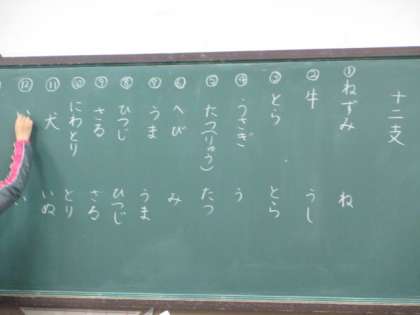 十二支
① ねずみ ね
② 牛 うし
③ とら とら
④ うさぎ う
⑤ たつ(りゅう) たつ
⑥ へび み
⑦ うま うま
⑧ ひつじ ひつじ
⑨ さる さる
⑩ にわとり とり
⑪ 犬 いぬ
⑫ い